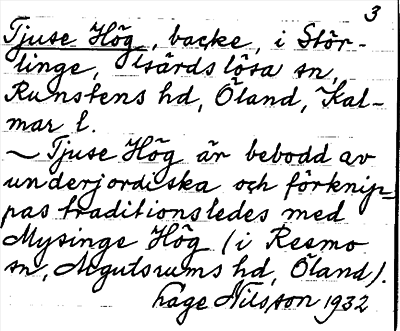 3
Tjuse Hög, backe, i Stör-
linge, Gärdslösa sn,
Runstens hd, Öland, Kal-
mar l.
~ Tjuse Hög är bebodd av
underjordiska och förknip-
pas traditionsledes med
Mysinge Hög (i Resmo
sn, Algutsrums hd, Öland).
Låge Nilsson 1932